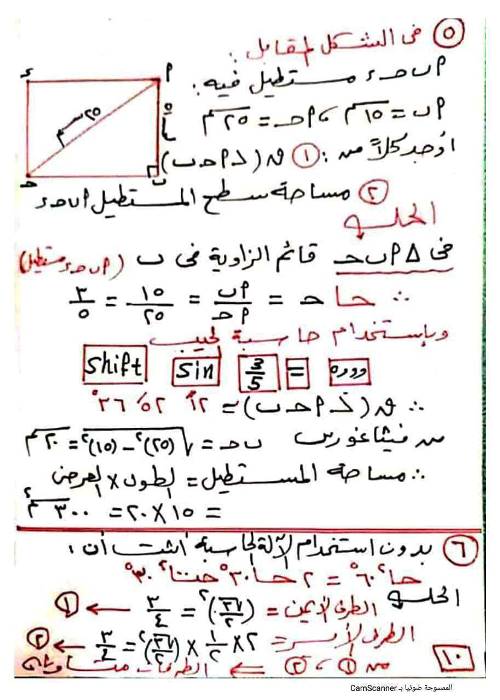 ٥ فى الشكل المقابل :
أ ب حـ ء مستطيل فيه :
أ ب = ١٥ سم ، أ حـ = ٢٥ سم
أوجد كلاً من : ① ق (∠ أ حـ ب)
② مساحة سطح المستطيل أ ب حـ ء
ء أ
٢٥ سم
١٥ سم
حـ ب
الحلــ
فى Δ أ ب حـ قائم الزاوية فى ب (أ ب حـ ء مستطيل)
∴ حا حـ = أب/أحـ = ١٥/٢٥ = ٣/٥
وبإستخدام حاسبة الجيب
shift sin 3/5 = °,,,
∴ ق (∠ أ حـ ب) = ١٢ ً ٥٢ َ ٣٦ °
من فيثاغورس ب حـ = √(٢٥)² - (١٥)² = ٢٠ سم
∴ مساحة المستطيل = الطول × العرض
= ١٥ × ٢٠ = ٣٠٠ سم²
٦ بدون استخدام الآلة الحاسبة أثبت أن :
حا² ٦٠° = ٢ حا ٣٠° حتا² ٣٠°
الحلــ
الطرف الأيمن = (√٣/٢)² = ٣/٤ ← ①
الطرف الأيسر = ٢ × ١/٢ × (√٣/٢)² = ٣/٤ ← ②
من ① ، ② ⇐ الطرفان متساويان
١٠
الممسوحة ضوئيا بـ CamScanner